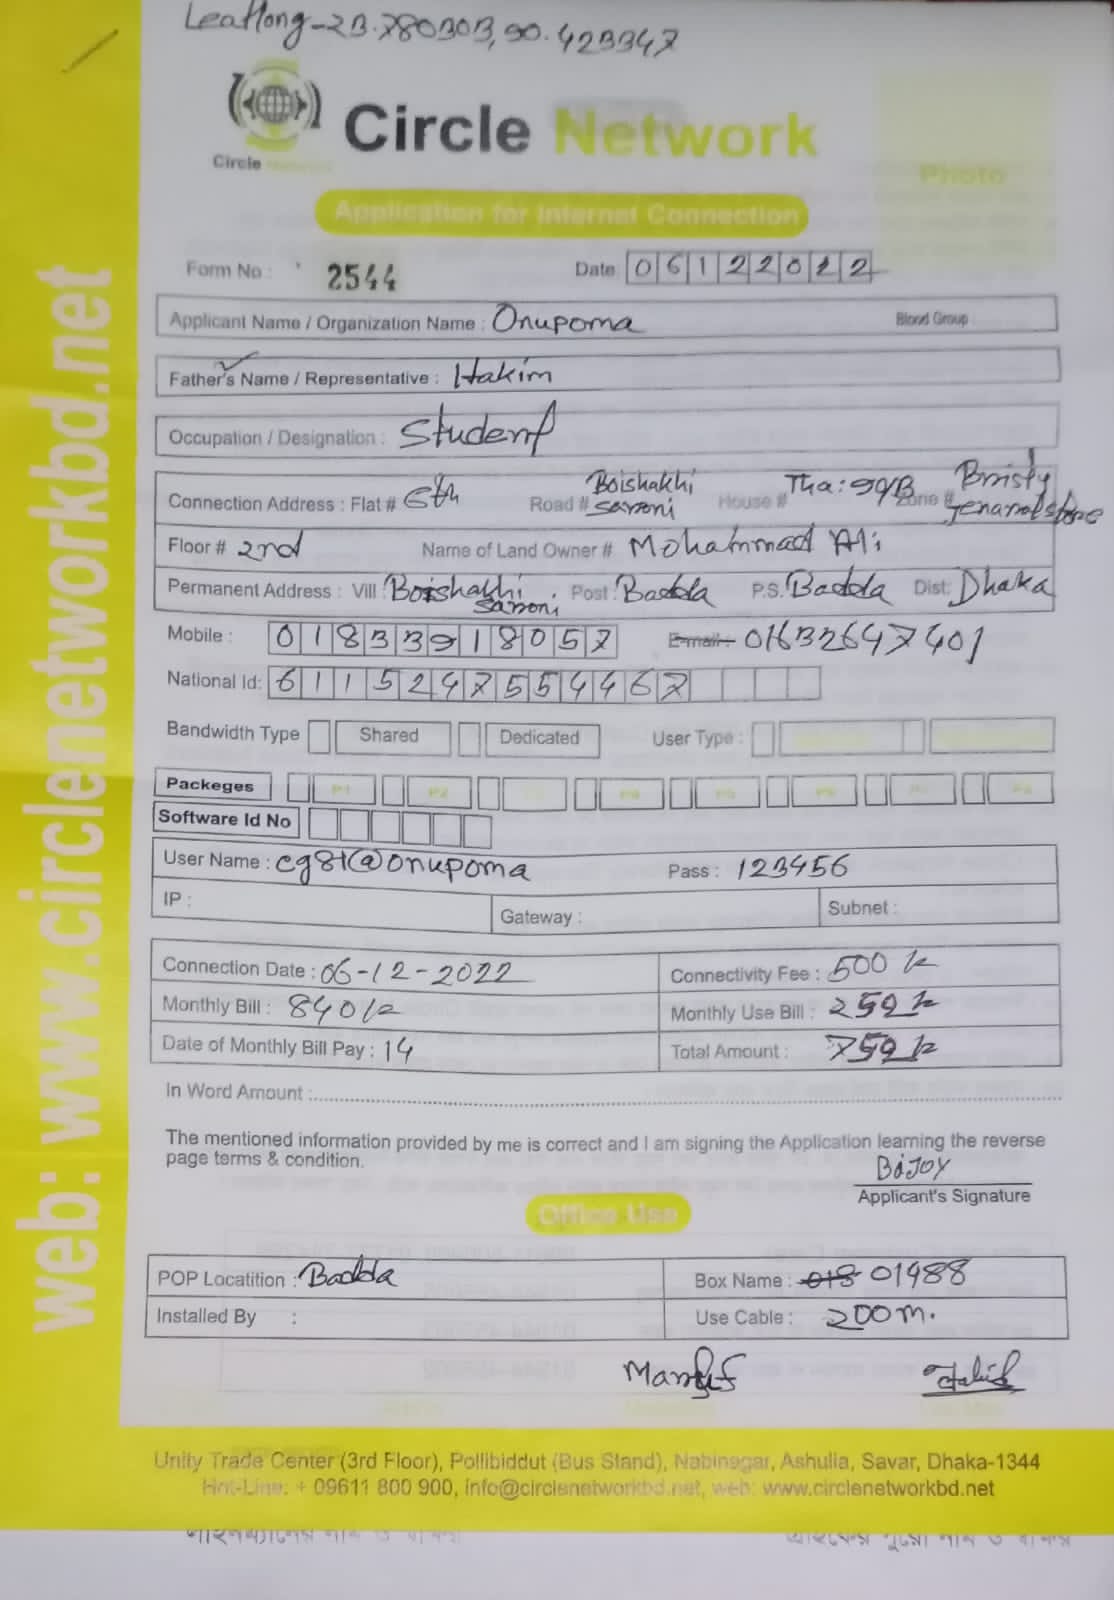 Leatlong-23.780303,90.423347
Circle Network
Circle
Photo
Application for Internet Connection
Form No : 2544 Date 06122022
Applicant Name / Organization Name : Onupoma Blood Group
Father's Name / Representative : Hakim
Occupation / Designation : Student
Connection Address : Flat # 6th Road # Boishakhi Sarroni House # Tha: 99/B Zone #
Floor # 2nd Name of Land Owner # Mohammad Ali
Permanent Address : Vill : Boishakhi Sarroni Post : Badda P.S. Badda Dist: Dhaka
Mobile : 01833918057 E-mail : 01632647401
National Id: 6115247554467
Bandwidth Type Shared Dedicated User Type :
Packeges P1 P2 P4 P5 P6 P7 P8
Software Id No
User Name : cg81@onupoma Pass : 123456
IP : Gateway : Subnet :
Connection Date : 06-12-2022 Connectivity Fee : 500 k
Monthly Bill : 840 k Monthly Use Bill : 259 k
Date of Monthly Bill Pay : 14 Total Amount : 759 k
In Word Amount :
The mentioned information provided by me is correct and I am signing the Application learning the reverse
page terms & condition.
BiJOY
Applicant's Signature
Office Use
POP Locatition : Badda Box Name : 018 01988
Installed By : Use Cable : 200m.
Unity Trade Center (3rd Floor), Pollibiddut (Bus Stand), Nabinagar, Ashulia, Savar, Dhaka-1344
Hot-Line: + 09611 800 900, info@circlenetworkbd.net, web: www.circlenetworkbd.net
web: www.circlenetworkbd.net